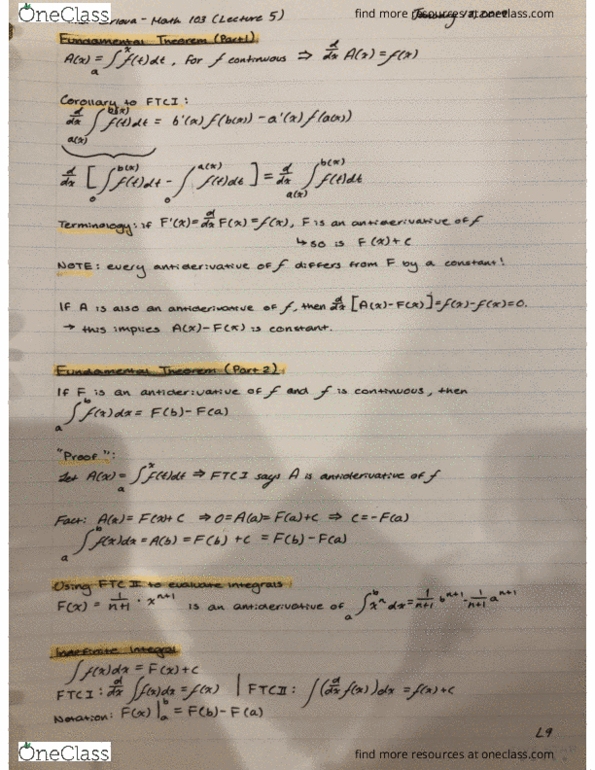 OneClass
find more resources at oneclass.com
- Math 103 (Lecture 5)
Fundamental Theorem (Part 1)
A(x) = ∫_a^x f(t)dt, for f continuous ⇒ d/dx A(x) = f(x)
Corollary to FTCI:
d/dx ∫_{a(x)}^{b(x)} f(t)dt = b'(x) f(b(x)) - a'(x) f(a(x))
d/dx [∫_0^{b(x)} f(t)dt - ∫_0^{a(x)} f(t)dt] = d/dx ∫_{a(x)}^{b(x)} f(t)dt
Terminology: if F'(x) = d/dx F(x) = f(x), F is an antiderivative of f
↳ so is F(x)+c
NOTE: every antiderivative of f differs from F by a constant!
If A is also an antiderivative of f, then d/dx [A(x)-F(x)] = f(x)-f(x)=0.
→ this implies A(x)-F(x) is constant.
Fundamental Theorem (Part 2)
If F is an antiderivative of f and f is continuous, then
∫_a^b f(x)dx = F(b)-F(a)
"Proof":
Let A(x) = ∫_a^x f(t)dt ⇒ FTCI says A is antiderivative of f
Fact: A(x) = F(x)+C ⇒ 0=A(a)=F(a)+C ⇒ C=-F(a)
∫_a^b f(x)dx = A(b) = F(b) + C = F(b)-F(a)
Using FTC II to evaluate integrals
F(x) = 1/(n+1) · x^{n+1} is an antiderivative of ∫_a^b x^n dx = 1/(n+1) b^{n+1} - 1/(n+1) a^{n+1}
Indefinite Integral
∫f(x)dx = F(x)+C
FTCI: d/dx ∫f(x)dx = f(x) | FTCII: ∫(d/dx f(x))dx = f(x)+C
Notation: F(x)|_a^b = F(b)-F(a)
L9
OneClass
find more resources at oneclass.com